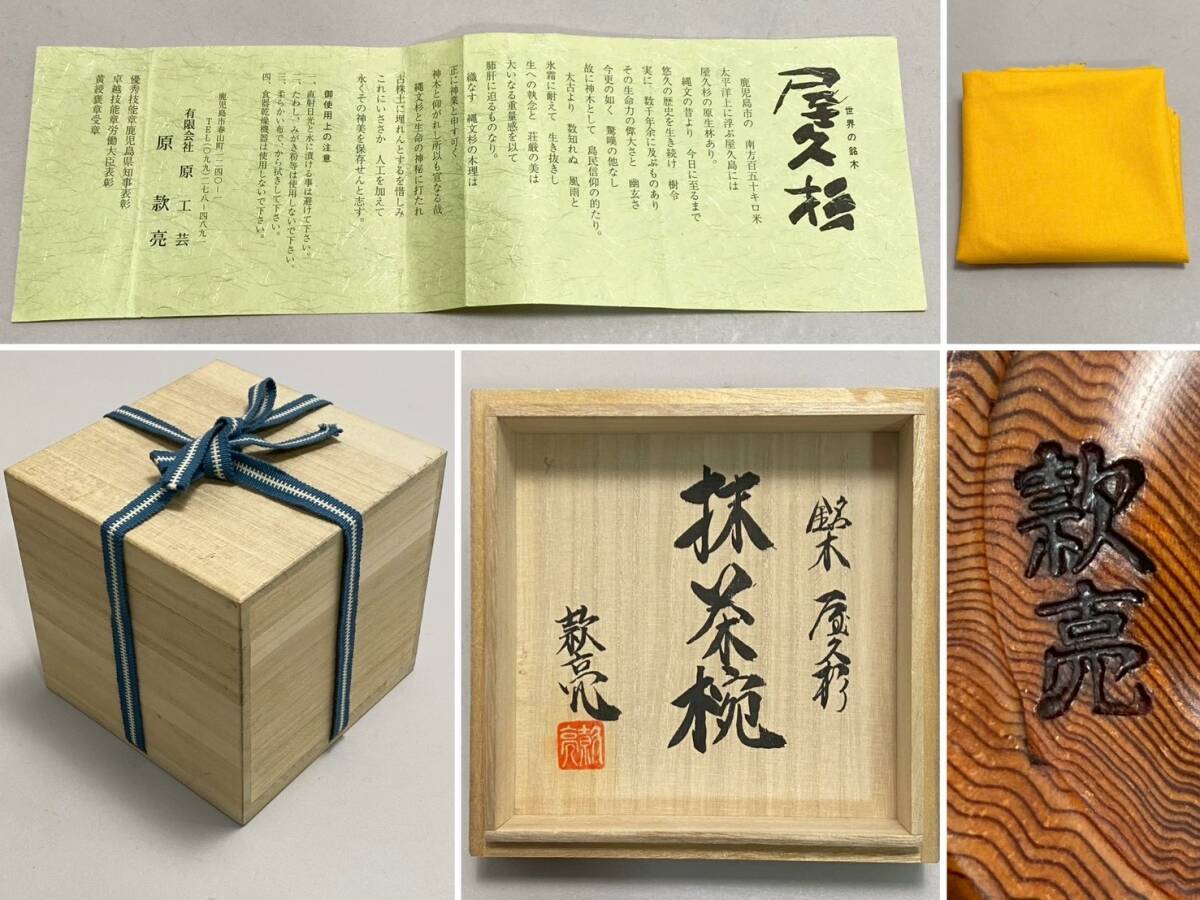 世界の銘木
屋久杉
鹿児島市の 南方百五十キロ米
太平洋上に浮ぶ屋久島には
屋久杉の原生林あり。
縄文の昔より 今日に至るまで
悠久の歴史を生き続け 樹令
実に 数千年余に及ぶものあり
その生命力の偉大さと 幽玄さ
今更の如く 驚嘆の他なし
故に神木として 島民信仰の的たり。
太古より 数知れぬ 風雨と
氷霜に耐えて 生き抜きし
生への執念と 荘厳の美は
大いなる重量感を以て
肺肝に迫るものなり。
織なす 縄文杉の木理は
正に神業と申す可く
神木と仰がれし所以も宜なる哉
縄文杉と生命の神秘に打たれ
古株土に埋れんとするを惜しみ
これにいささか 人工を加えて
永くその神美を保存せんと志す。
御使用上の注意
一、直射日光と水に漬ける事は避けて下さい。
二、たわし、みがき粉等は使用しないで下さい。
三、柔らかい布で、から拭きして下さい。
四、食器乾燥機器は使用しないで下さい。
鹿児島市春山町一二四〇ー一
TEL(〇九九)二七八ー四八九一
有限会社 原工芸
原 款亮
優秀技能章鹿児島県知事表彰
卓越技能章労働大臣表彰
黄綬褒章受章
銘木 屋久杉
抹茶椀
款亮
款亮
款亮